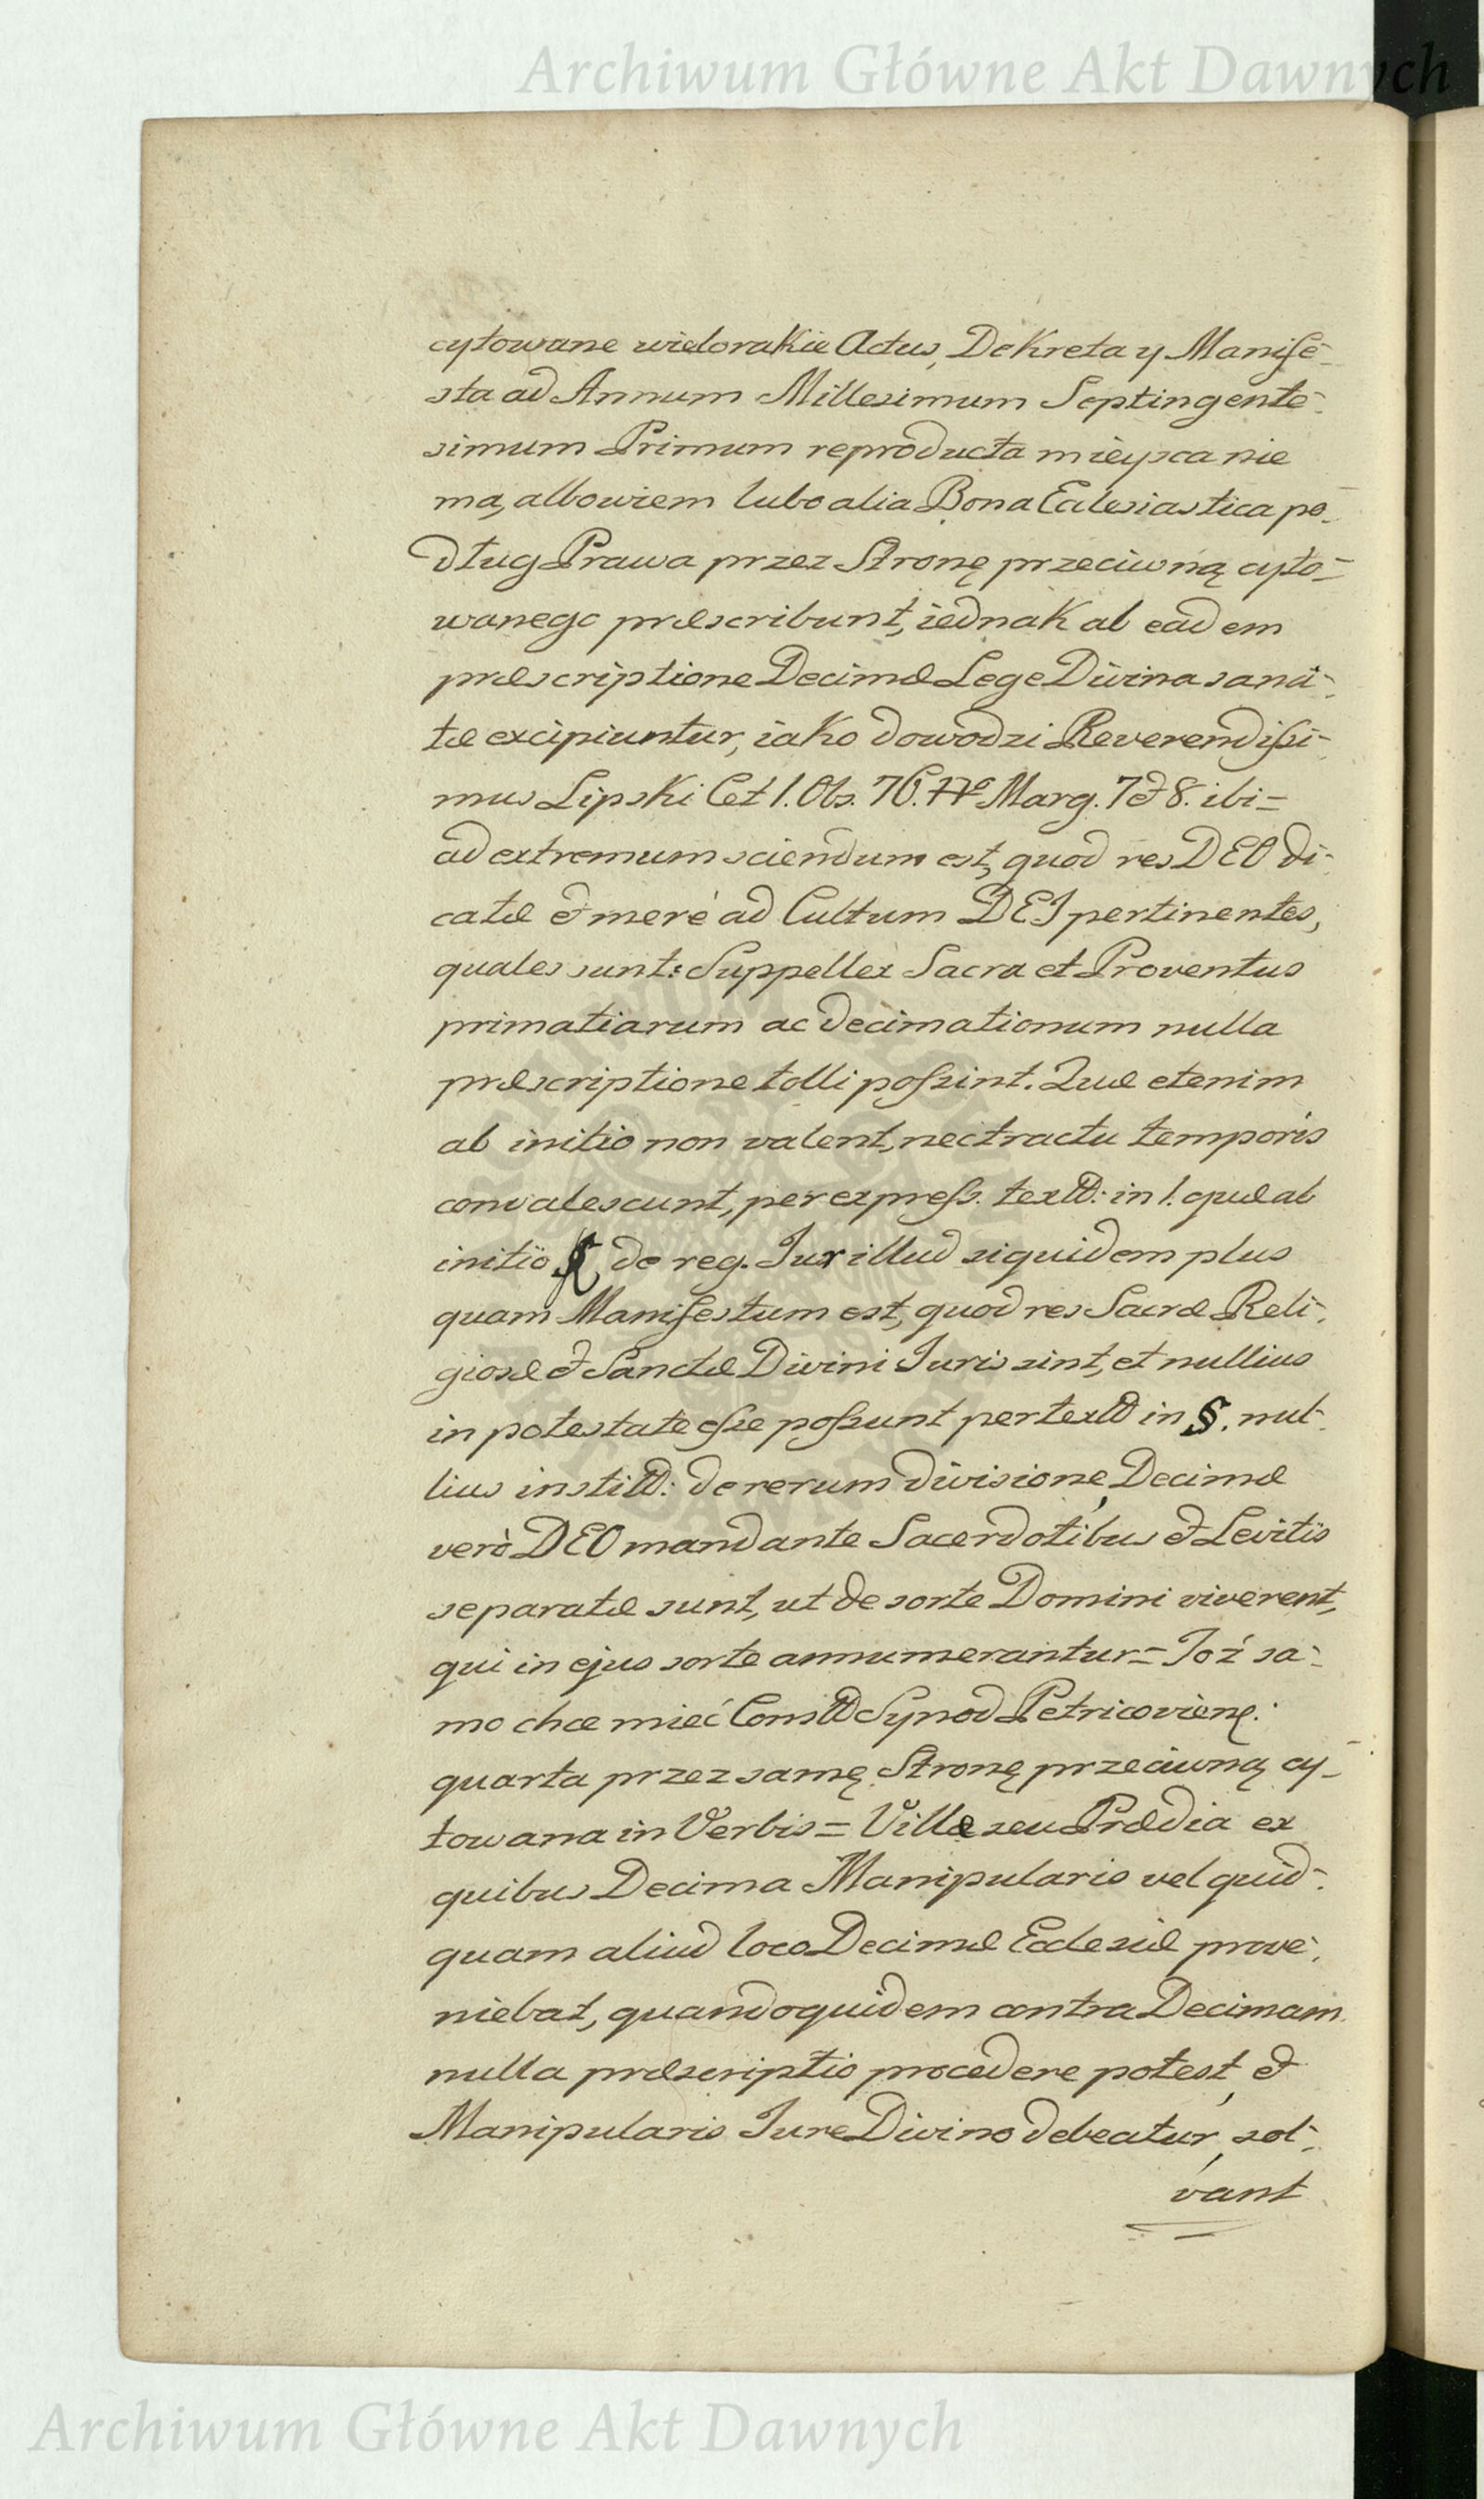 Archiwum Główne Akt Dawnych
cytowane wielorakie Actus, Dekreta y Manife-
sta ad Annum Millesimum Septingente-
simum Primum reproducta mieysca nie
ma, albowiem lubo alia Bona Eclesiastica po-
dług Prawa przez Stronę przeciwną cyto-
wanego præscribunt, iednak ab eadem
præscriptione Decimæ Lege Divina sanci-
tæ excipiuntur, iako dowodzi Reverendissi-
mus Lipski Cet 1. Obs. 76. Marg. 7 & 8. ibi =
ad extremum sciendum est, quod res DEO di-
catæ & merè ad Cultum DEI pertinentes,
quales sunt: Suppellex Sacra et Proventus
primatiarum ac decimationum nulla
præscriptione tolli possint. Quæ etenim
ab initio non valent, nec tractu temporis
convalescunt, per express. textt: in l. quæ ab
initio de reg. Jur illud siquidem plus
quam Manifestum est, quod res Sacræ Reli-
giosæ & Sanctæ Divini Juris sint, et nullius
in potestate esse possunt per textt in §. nul-
lius institt: de rerum divisione, Decimæ
verò DEO mandante Sacerdotibus & Levitis
separatæ sunt, ut de sorte Domini viverent,
qui in ejus sorte annumerantur = Toż sa-
mo chce mieć Constt Synod Petricovien:
quarta przez samę Stronę przeciwną cy-
towana in Verbis = Villæ seu Prædia ex
quibus Decima Manipularis vel quid-
quam aliud loco Decimæ Ecclesiæ prove-
niebat, quandoquidem contra Decimam
nulla præscriptio procedere potest, &
Manipularis Jure Divino debeatur, sol-
vant
Archiwum Główne Akt Dawnych